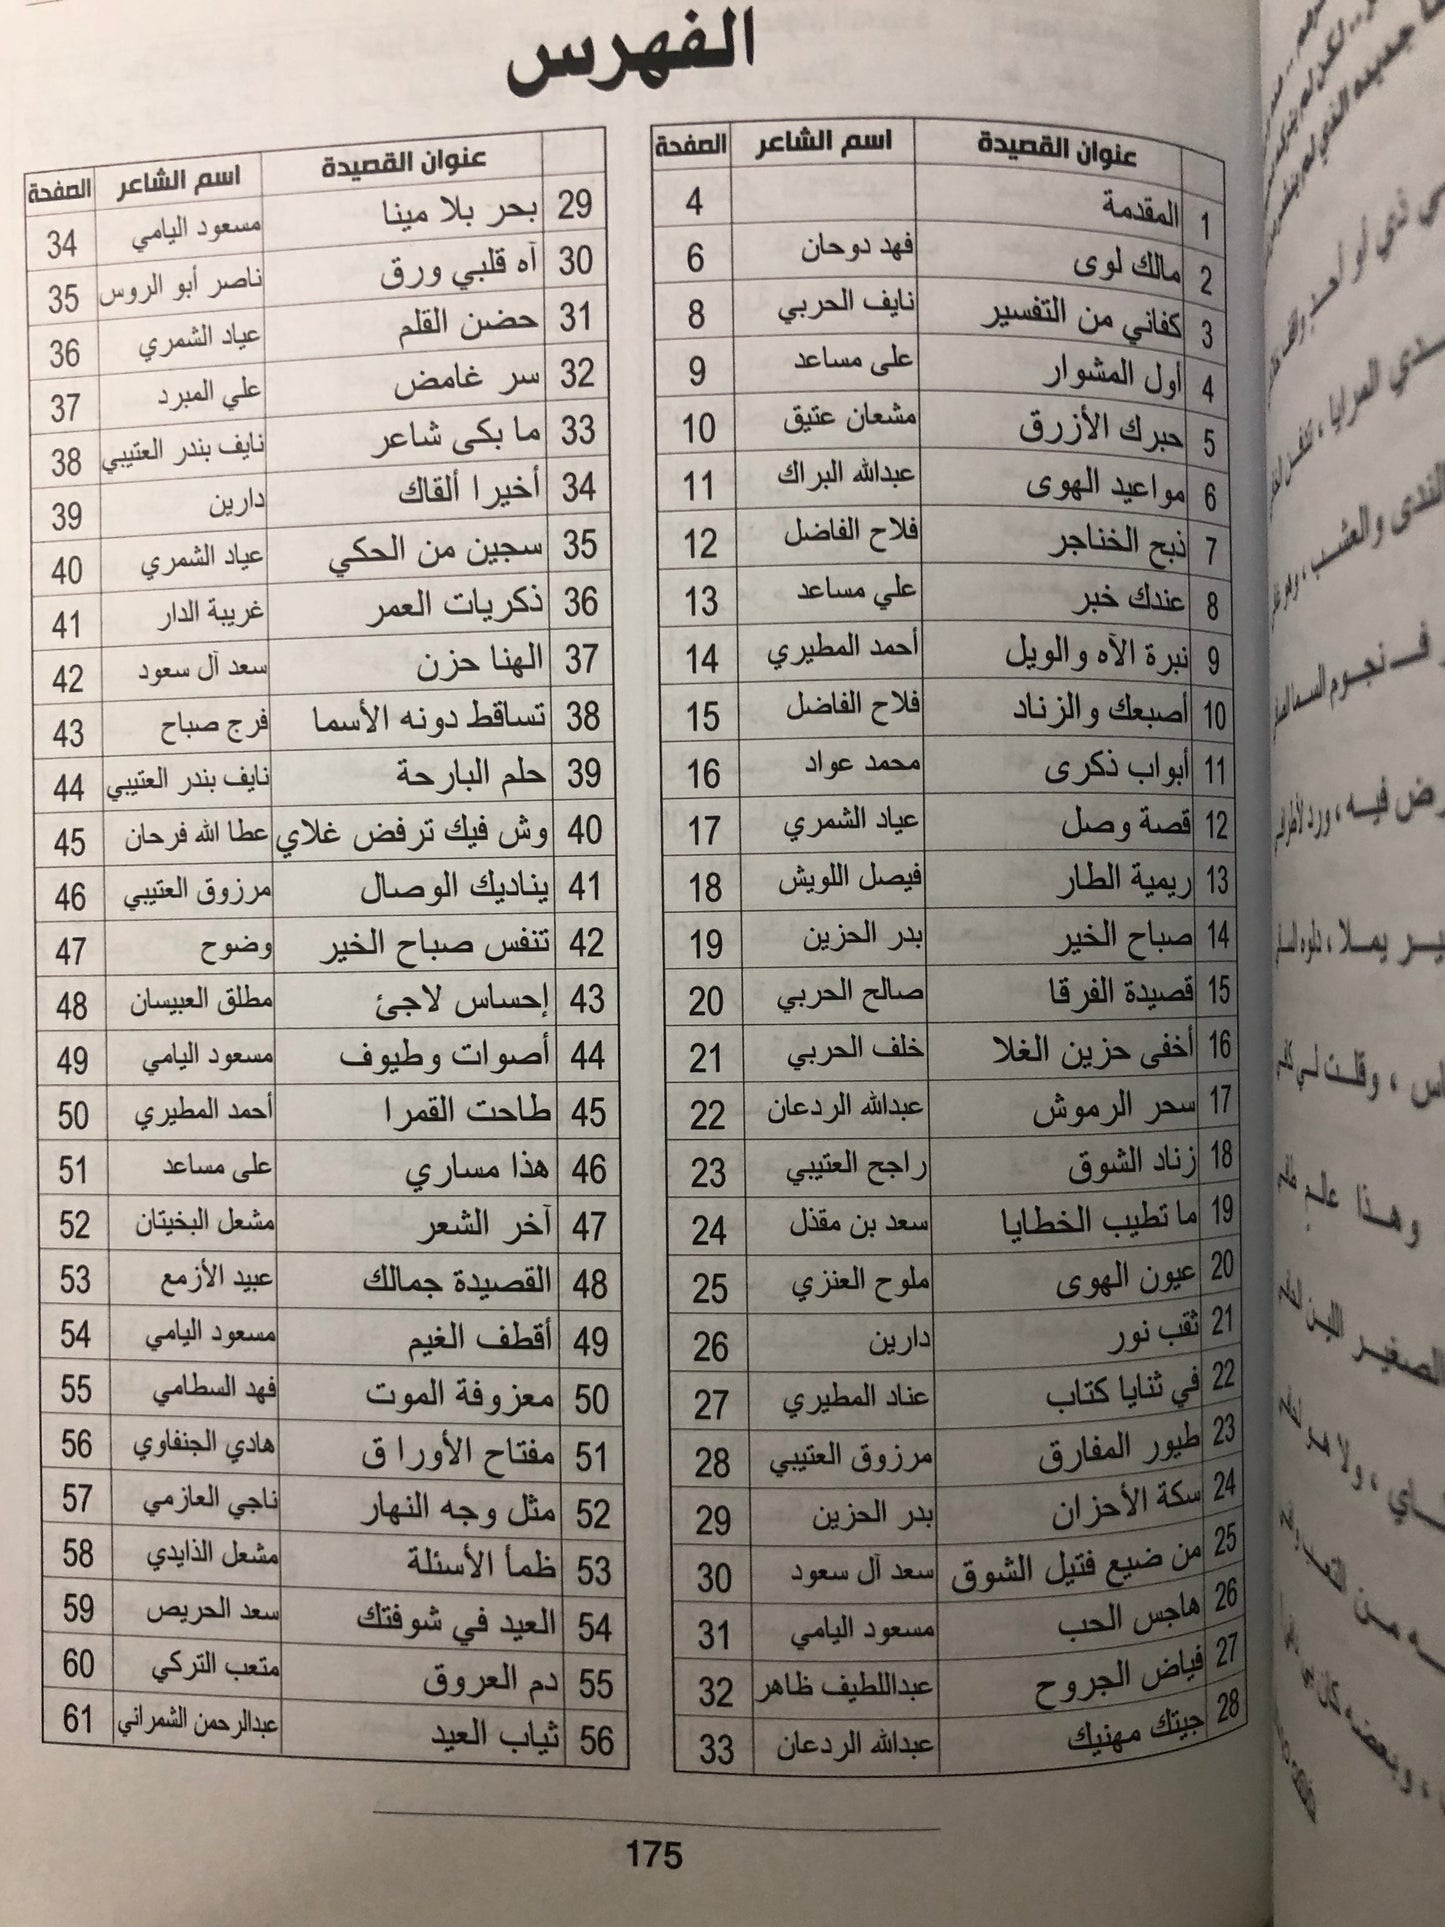 الفهرس
عنوان القصيدة اسم الشاعر الصفحة
1 المقدمة 4
2 مالك لوى فهد دوحان 6
3 كفاني من التفسير نايف الحربي 8
4 أول المشوار على مساعد 9
5 حبرك الأزرق مشعان عتيق 10
6 مواعيد الهوى عبدالله البراك 11
7 ذبح الخناجر فلاح الفاضل 12
8 عندك خبر علي مساعد 13
9 نبرة الآه والويل أحمد المطيري 14
10 أصبعك والزناد فلاح الفاضل 15
11 أبواب ذكرى محمد عواد 16
12 قصة وصل عياد الشمري 17
13 ريمية الطار فيصل اللويش 18
14 صباح الخير بدر الحزين 19
15 قصيدة الفرقا صالح الحربي 20
16 أخفى حزين الغلا خلف الحربي 21
17 سحر الرموش عبدالله الردعان 22
18 زناد الشوق راجح العتيبي 23
19 ما تطيب الخطايا سعد بن مقذل 24
20 عيون الهوى ملوح العنزي 25
21 ثقب نور دارين 26
22 في ثنايا كتاب عناد المطيري 27
23 طيور المفارق مرزوق العتيبي 28
24 سكة الأحزان بدر الحزين 29
25 من ضيع فتيل الشوق سعد آل سعود 30
26 هاجس الحب مسعود اليامي 31
27 فياض الجروح عبداللطيف ظاهر 32
28 جيتك مهنيك عبدالله الردعان 33
عنوان القصيدة اسم الشاعر الصفحة
29 بحر بلا مينا مسعود اليامي 34
30 آه قلبي ورق ناصر أبو الروس 35
31 حضن القلم عياد الشمري 36
32 سر غامض علي المبرد 37
33 ما بكى شاعر نايف بندر العتيبي 38
34 أخيرا ألقاك دارين 39
35 سجين من الحكي عياد الشمري 40
36 ذكريات العمر غريبة الدار 41
37 الهنا حزن سعد آل سعود 42
38 تساقط دونه الأسما فرج صباح 43
39 حلم البارحة نايف بندر العتيبي 44
40 وش فيك ترفض غلاي عطا الله فرحان 45
41 يناديك الوصال مرزوق العتيبي 46
42 تنفس صباح الخير وضوح 47
43 إحساس لاجئ مطلق العبيسان 48
44 أصوات وطيوف مسعود اليامي 49
45 طاحت القمرا أحمد المطيري 50
46 هذا مساري على مساعد 51
47 آخر الشعر مشعل البخيتان 52
48 القصيدة جمالك عبيد الأزمع 53
49 أقطف الغيم مسعود اليامي 54
50 معزوفة الموت فهد السطامي 55
51 مفتاح الأوراق هادي الجنفاوي 56
52 مثل وجه النهار ناجي العازمي 57
53 ظمأ الأسئلة مشعل الذايدي 58
54 العيد في شوفتك سعد الحريص 59
55 دم العروق متعب التركي 60
56 ثياب العيد عبدالرحمن الشمراني 61
175